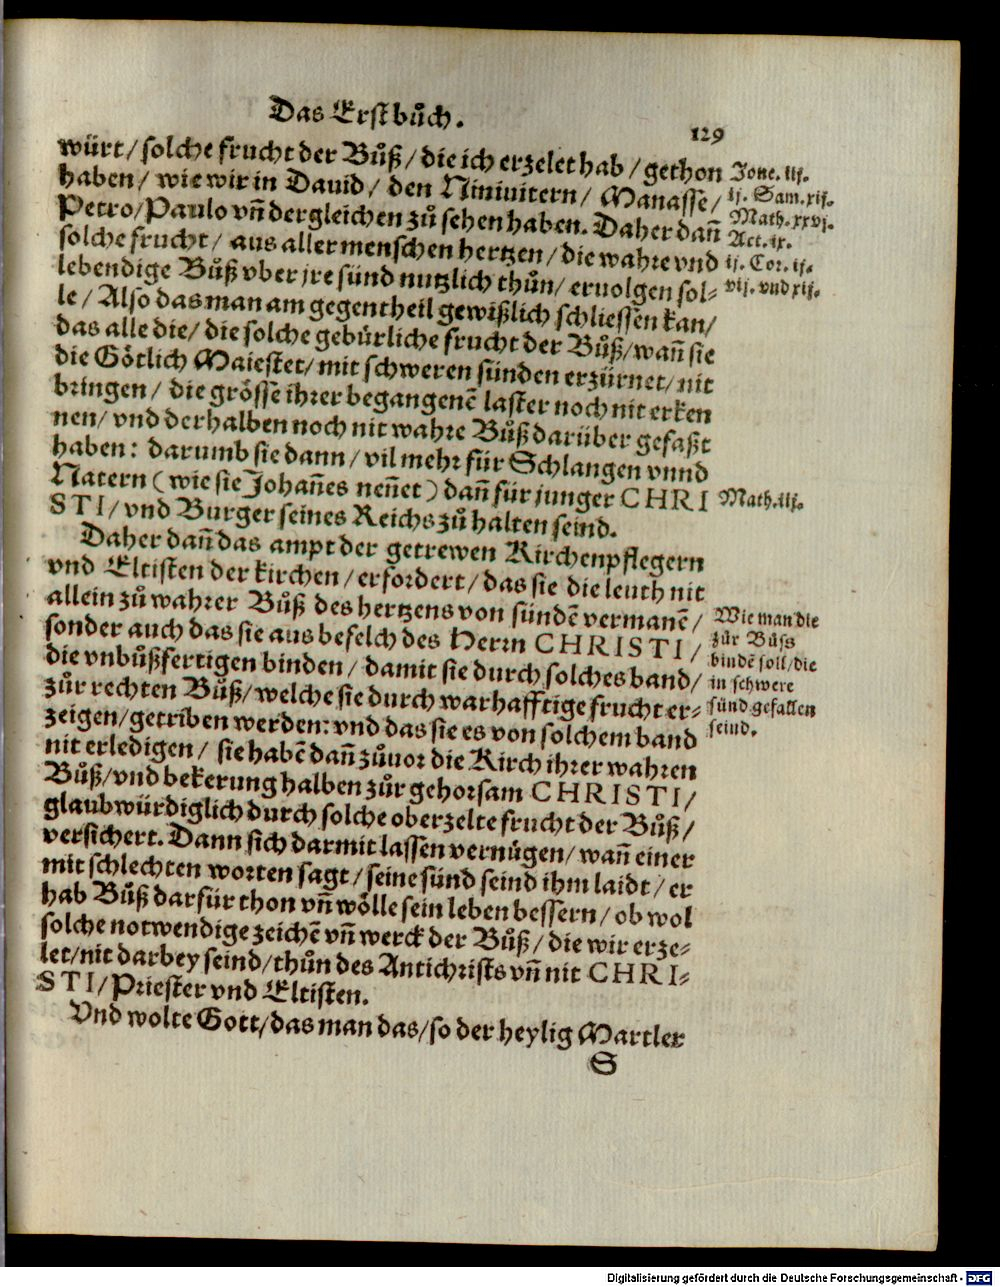 Das Erst bůch.
129
würt/ solche frucht der Bůß/ die ich erzelet hab/ gethon
haben/ wie wir in Dauid/ den Niniuitern/ Manasse/
Petro/ Paulo vñ dergleichen zů sehen haben. Daher dañ
solche frucht/ aus aller menschen hertzen/ die wahre vnd
lebendige Bůß vber jre sünd nutzlich thůn/ eruolgen sol⸗
le/ Also das man am gegentheil gewißlich schliessen kan/
das alle die/ die solche gebürliche frucht der Bůß/ wañ sie
die Götlich Maiestet/ mit schweren sünden erzürnet/ nit
bringen/ die grösse ihrer begangenē laster noch nit erken
nen/ vnd derhalben noch nit wahre Bůß darüber gefaßt
haben: darumb sie dann/ vil mehr für Schlangen vnnd
Natern (wie sie Johañes neñet) dañ für junger CHRI
STI/ vnd Burger seines Reichs zů halten seind.
Daher dañ das ampt der getrewen Kirchenpflegern
vnd Eltisten der kirchen/ erfordert/ das sie die leuth nit
allein zů wahrer Bůß des hertzens von sündē vermanē/
sonder auch das sie aus befelch des Herrn CHRISTI/
die vnbůßfertigen binden/ damit sie durch solches band/
zůr rechten Bůß/ welche sie durch warhafftige frucht er⸗
zeigen/ getriben werden: vnd das sie es von solchem band
nit erledigen/ sie habē dañ zůuor die Kirch ihrer wahren
Bůß/ vnd bekerung halben zůr gehorsam CHRISTI/
glaubwürdiglich durch solche oberzelte frucht der Bůß/
versichert. Dann sich darmit lassen vernügen/ wañ einer
mit schlechten worten sagt/ seine sünd seind ihm laidt/ er
hab Bůß darfür thon vñ wölle sein leben bessern/ ob wol
solche notwendige zeichē vñ werck der Bůß/ die wir erze⸗
let/ nit darbey seind/ thůn des Antichrists vñ nit CHRI⸗
STI/ Priester vnd Eltisten.
Vnd wolte Gott/ das man das/ so der heylig Martler
S
Jone. iij.
ij. Sam. xij.
Math. xxvj.
Act. ix.
ij. Cor. ij.
vij. vnd xij.
Math. iij.
Wie man die
zůr Bůss
bindē soll/ die
in schwere
sünd gefallen
seind.
Digitalisierung gefördert durch die Deutsche Forschungsgemeinschaft - DFG